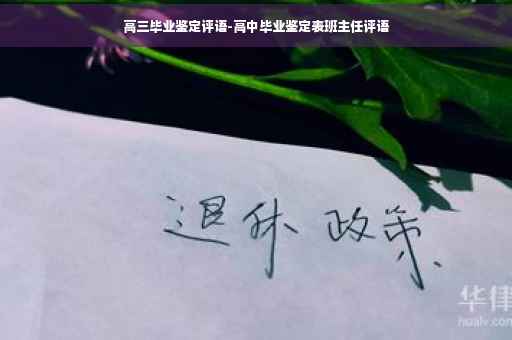 高三毕业鉴定评语-高中毕业鉴定表班主任评语
退休 政策
华律
hualv.com